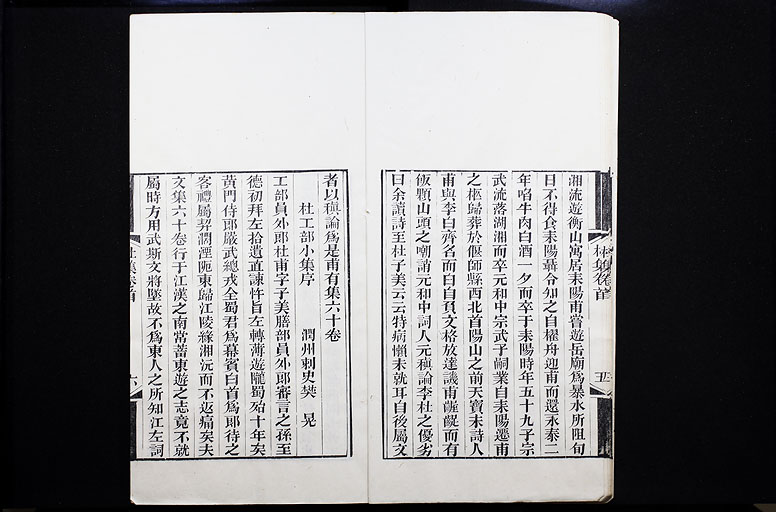 湘流遊衡山寓居耒陽甫嘗遊岳廟爲暴水所阻旬
日不得食耒陽聶令知之自櫂舟迎甫而還永泰二
年啗牛肉白酒一夕而卒于耒陽時年五十九子宗
武流落湖湘而卒元和中宗武子嗣業自耒陽遷甫
之柩歸葬於偃師縣西北首陽山之前天寶末詩人
甫與李白齊名而白自負文格放達譏甫齷齪而有
飯顆山頭之嘲誚元和中詞人元稹論李杜之優劣
曰余讀詩至杜子美云云特病懶未就耳自後屬文
杜集卷首
五
者以稹論爲是甫有集六十卷
杜工部小集序 潤州刺史樊 晃
工部員外郎杜甫字子美膳部員外郎審言之孫至
德初拜左拾遺直諫忤旨左轉薄遊隴蜀殆十年矣
黃門侍郎嚴武總戎全蜀君爲幕賓白首爲郎待之
客禮屬契濶湮阨東歸江陵緣湘沅而不返痛矣夫
文集六十卷行于江漢之南常蓄東遊之志竟不就
屬時方用武斯文將墜故不爲東人之所知江左詞
杜集卷首
六